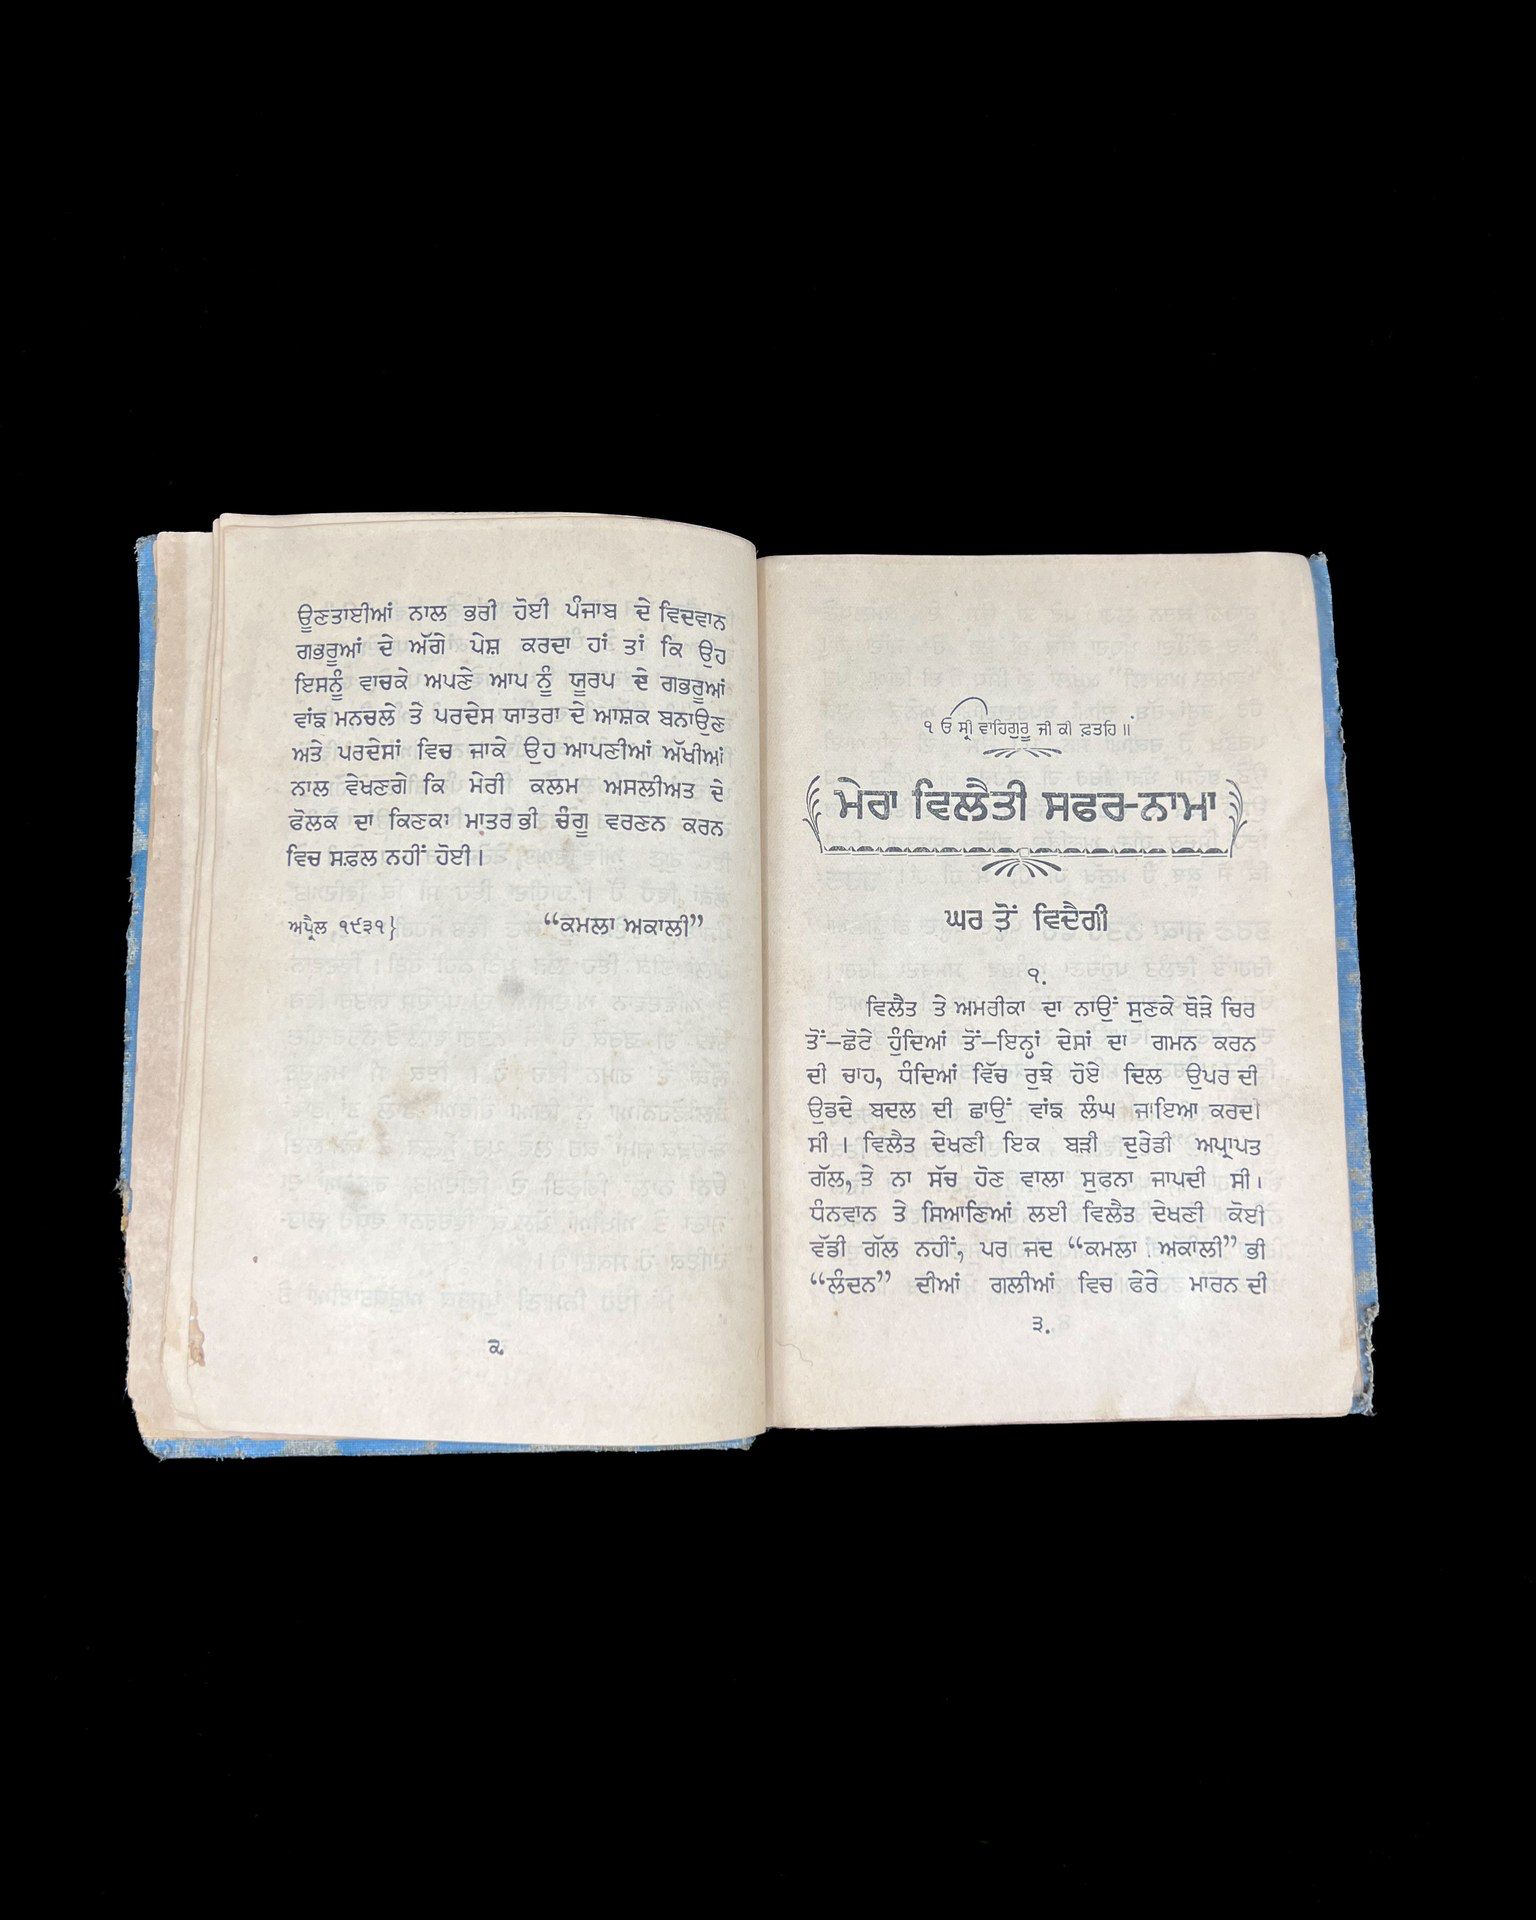 ਊਣਤਾਈਆਂ ਨਾਲ ਭਰੀ ਹੋਈ ਪੰਜਾਬ ਦੇ ਵਿਦਵਾਨ
ਗਭਰੂਆਂ ਦੇ ਅੱਗੇ ਪੇਸ਼ ਕਰਦਾ ਹਾਂ ਤਾਂ ਕਿ ਉਹ
ਇਸਨੂੰ ਵਾਚਕੇ ਅਪਣੇ ਆਪ ਨੂੰ ਯੂਰਪ ਦੇ ਗਭਰੂਆਂ
ਵਾਂਙ ਮਨਚਲੇ ਤੇ ਪਰਦੇਸ ਯਾਤਰਾ ਦੇ ਆਸ਼ਕ ਬਨਾਉਣ
ਅਤੇ ਪਰਦੇਸਾਂ ਵਿਚ ਜਾਕੇ ਉਹ ਆਪਣੀਆਂ ਅੱਖੀਆਂ
ਨਾਲ ਵੇਖਣਗੇ ਕਿ ਮੇਰੀ ਕਲਮ ਅਸਲੀਅਤ ਦੇ
ਫੋਲਕ ਦਾ ਕਿਣਕਾ ਮਾਤਰ ਭੀ ਚੰਗੂ ਵਰਣਨ ਕਰਨ
ਵਿਚ ਸਫ਼ਲ ਨਹੀਂ ਹੋਈ।
ਅਪ੍ਰੈਲ ੧੯੩੧} “ਕਮਲਾ ਅਕਾਲੀ”
੨.
੧ ਓ ਸ੍ਰੀ ਵਾਹਿਗੁਰੂ ਜੀ ਕੀ ਫ਼ਤਹਿ॥
ਮੇਰਾ ਵਿਲੈਤੀ ਸਫਰ-ਨਾਮਾ
ਘਰ ਤੋਂ ਵਿਦੈਗੀ
੧.
ਵਿਲੈਤ ਤੇ ਅਮਰੀਕਾ ਦਾ ਨਾਉਂ ਸੁਣਕੇ ਥੋੜੇ ਚਿਰ
ਤੋਂ—ਛੋਟੇ ਹੁੰਦਿਆਂ ਤੋਂ—ਇਨ੍ਹਾਂ ਦੇਸਾਂ ਦਾ ਗਮਨ ਕਰਨ
ਦੀ ਚਾਹ, ਧੰਦਿਆਂ ਵਿੱਚ ਰੁਝੇ ਹੋਏ ਦਿਲ ਉਪਰ ਦੀ
ਉਡਦੇ ਬਦਲ ਦੀ ਛਾਉਂ ਵਾਂਙ ਲੰਘ ਜਾਇਆ ਕਰਦੀ
ਸੀ। ਵਿਲੈਤ ਦੇਖਣੀ ਇਕ ਬੜੀ ਦੁਰੇਡੀ ਅਪ੍ਰਾਪਤ
ਗੱਲ, ਤੇ ਨਾ ਸੱਚ ਹੋਣ ਵਾਲਾ ਸੁਫਨਾ ਜਾਪਦੀ ਸੀ।
ਧੰਨਵਾਨ ਤੇ ਸਿਆਣਿਆਂ ਲਈ ਵਿਲੈਤ ਦੇਖਣੀ ਕੋਈ
ਵੱਡੀ ਗੱਲ ਨਹੀਂ, ਪਰ ਜਦ “ਕਮਲਾ ਅਕਾਲੀ” ਭੀ
“ਲੰਦਨ” ਦੀਆਂ ਗਲੀਆਂ ਵਿਚ ਫੇਰੇ ਮਾਰਨ ਦੀ
੩.